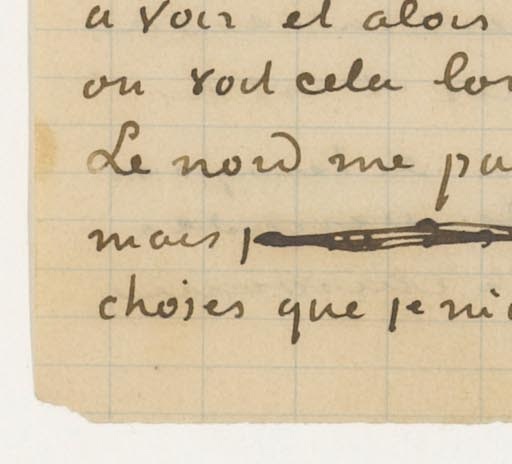 à voir et alors
on voit cela
Le nord me
mais
choses que je